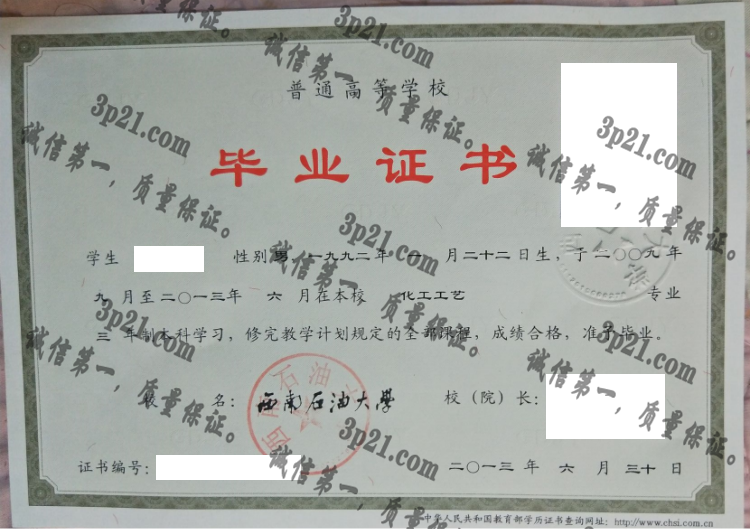 普通高等学校
毕业证书
学生 性别 男 一九九二年 一 月二十二日生，于二〇〇九年
九 月至二〇一三年 六 月在本校 化工工艺 专业
三 年制本科学习，修完教学计划规定的全部课程，成绩合格，准予毕业。
校 名：西南石油大學 校（院）长：
证书编号： 二〇一三年 六 月 三十 日
中华人民共和国教育部学历证书查询网址：http://www.chsi.com.cn
3p21.com
诚信第一，质量保证。
3p21.com
诚信第一，质量保证。
3p21.com
诚信第一，质量保证。
3p21.com
诚信第一，质量保证。
3p21.com
诚信第一，质量保证。
3p21.com
诚信第一，质量保证。
3p21.com
诚信第一，质量保证。